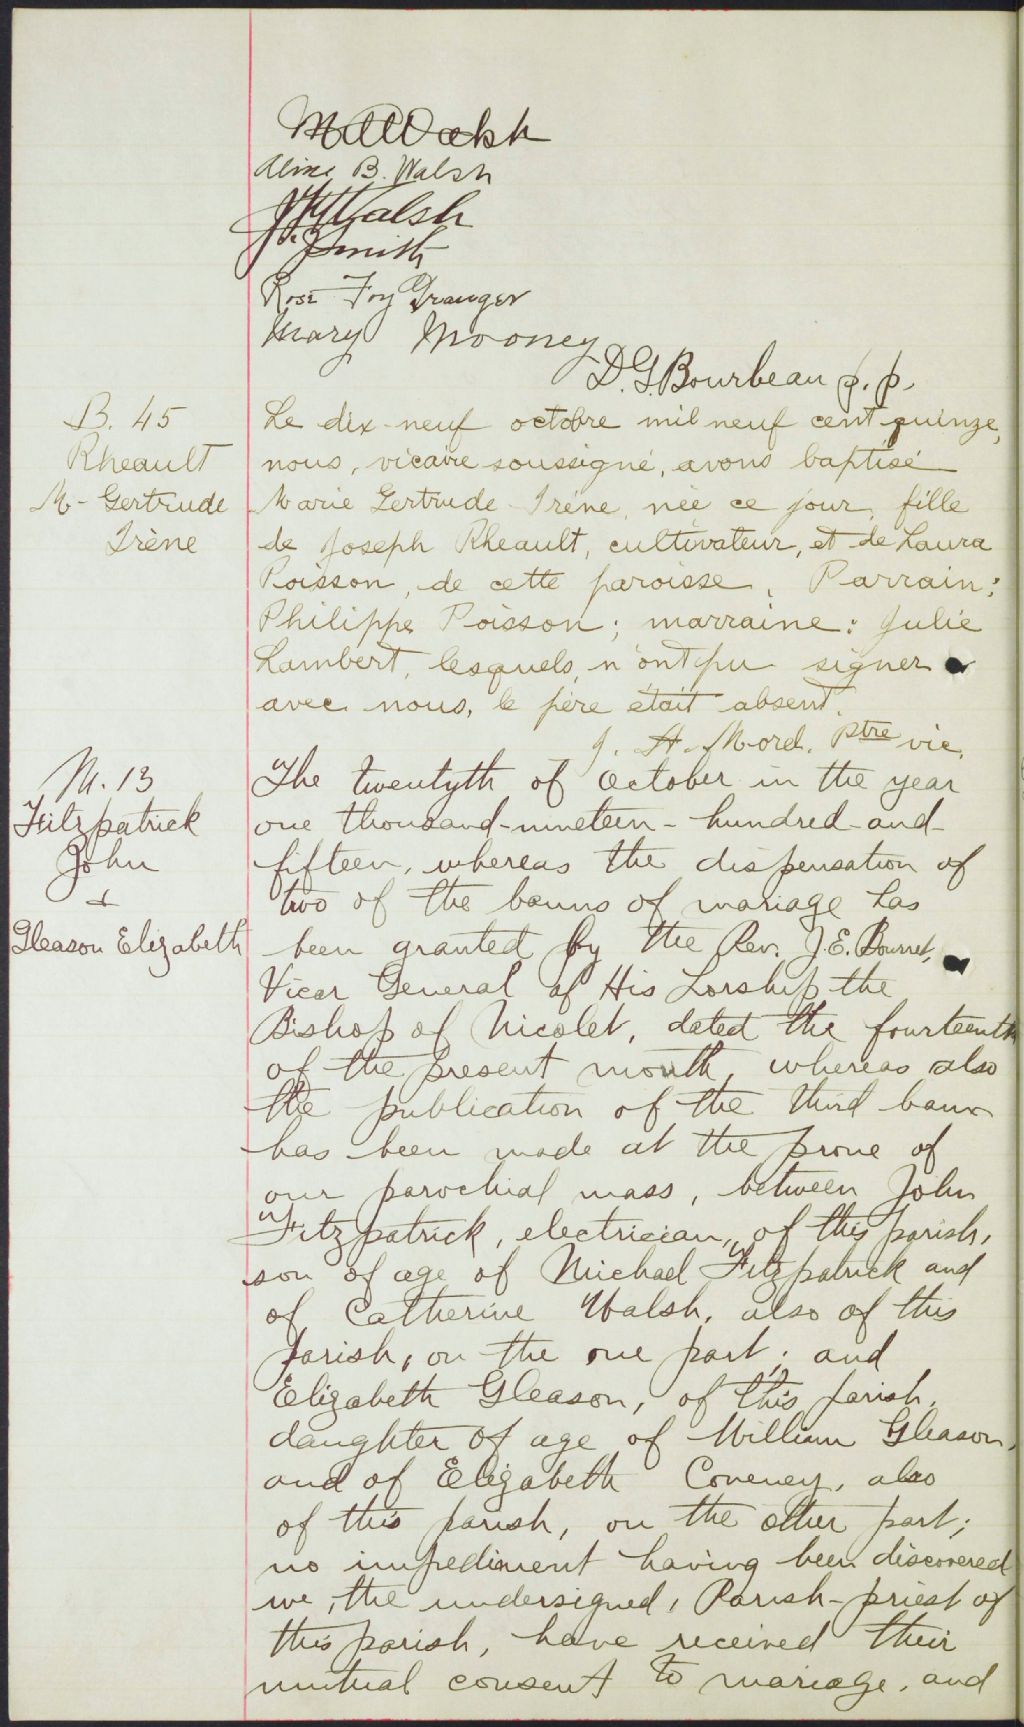 Walsh
Aline B. Walsh
Walsh
J. Smith
Rose Foy Granger
Mary Mooney
D. G. Bourbeau p. p.
B. 45
Rheault
M- Gertrude
Irène
Le dix-neuf octobre mil neuf cent quinze,
nous, vicaire soussigné, avons baptisé
Marie Gertrude Irène, née ce jour, fille
de Joseph Rheault, cultivateur, et de Laura
Poisson, de cette paroisse. Parrain:
Philippe Poisson; marraine: Julie
Lambert, lesquels, n'ont pu signer
avec nous, le père était absent.
J. H. Morel. Ptre vic.
M. 13
Fitzpatrick
John
+
Gleason Elizabeth
The twentyth of October in the year
one thousand-nineteen-hundred-and-
fifteen, whereas the dispensation of
two of the banns of mariage has
been granted by the Rev. J. E.
Vicar General of His Lorship the
Bishop of Nicolet, dated the fourteenth
of the present month, whereas also
the publication of the third bann
has been made at the prone of
our parochial mass, between John
Fitzpatrick, electrician, of this parish,
son of age of Michael Fitzpatrick and
of Catherine Walsh, also of this
parish, on the one part; and
Elizabeth Gleason, of this parish,
daughter of age of William Gleason,
and of Elizabeth Coveney, also
of this parish, on the other part;
no impediment having been discovered
we, the undersigned, Parish-priest of
this parish, have received their
mutual consent to mariage, and